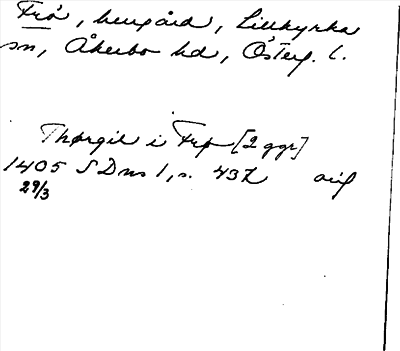 Frö, herrgård, Lillkyrka
sn, Åkerbo hd, Österg. l.
Thørgil i Frø [2 ggr]
1405 SDns 1, s. 432 orig
29/3